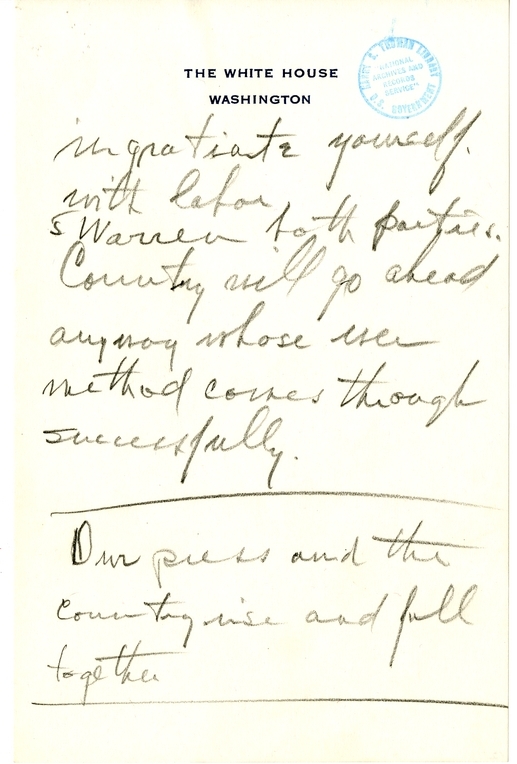 THE WHITE HOUSE
WASHINGTON
HARRY S. TRUMAN LIBRARY
"NATIONAL
ARCHIVES AND
RECORDS
SERVICE"
U.S. GOVERNMENT
ingratiate yourself.
with labor
5 Warren both parties.
Country will go ahead
anyway whose
method comes through
successfully.
Our press and the
country rise and fall
together